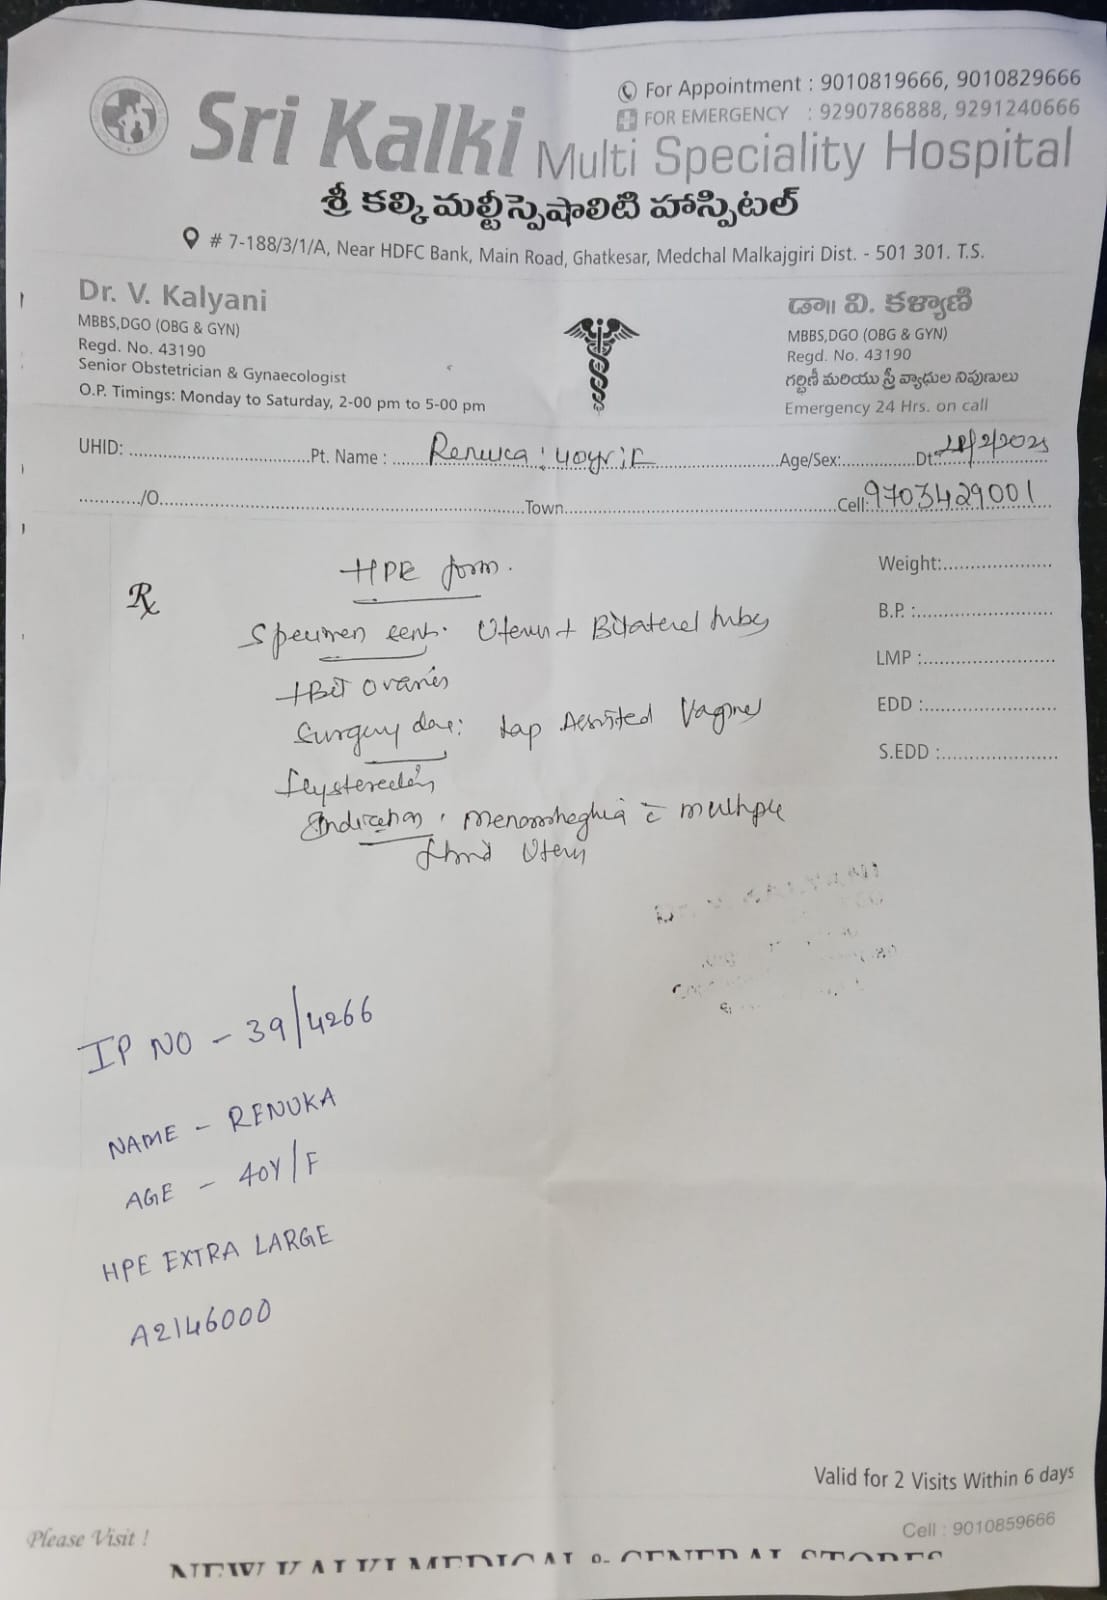 For Appointment : 9010819666, 9010829666
FOR EMERGENCY : 9290786888, 9291240666
Sri Kalki Multi Speciality Hospital
శ్రీ కల్కి మల్టీస్పెషాలిటి హాస్పిటల్
# 7-188/3/1/A, Near HDFC Bank, Main Road, Ghatkesar, Medchal Malkajgiri Dist. - 501 301. T.S.
Dr. V. Kalyani
MBBS,DGO (OBG & GYN)
Regd. No. 43190
Senior Obstetrician & Gynaecologist
O.P. Timings: Monday to Saturday, 2-00 pm to 5-00 pm
డా॥ వి. కళ్యాణి
MBBS,DGO (OBG & GYN)
Regd. No. 43190
గర్భిణీ మరియు స్త్రీ వ్యాధుల నిపుణులు
Emergency 24 Hrs. on call
UHID: Pt. Name : Renuca : 40yr Age/Sex: Dt: /2/2025
/O Town Cell: 9703429001
Rx
HPE form.
Specimen sent. Uterus + Bilateral tubes
+ Bet ovaries
Surgery done: Lap Assisted Vaginal
Hysterectomy
Indication : Menorrhaghia c̄ multiple
fibroid Uterus
Weight:
B.P. :
LMP :
EDD :
S.EDD :
IP NO - 39/4266
NAME - RENUKA
AGE - 40Y/F
HPE EXTRA LARGE
A2146000
Valid for 2 Visits Within 6 days
Please Visit !
Cell : 9010859666
NEW KALKI MEDICAL & GENERAL STORES